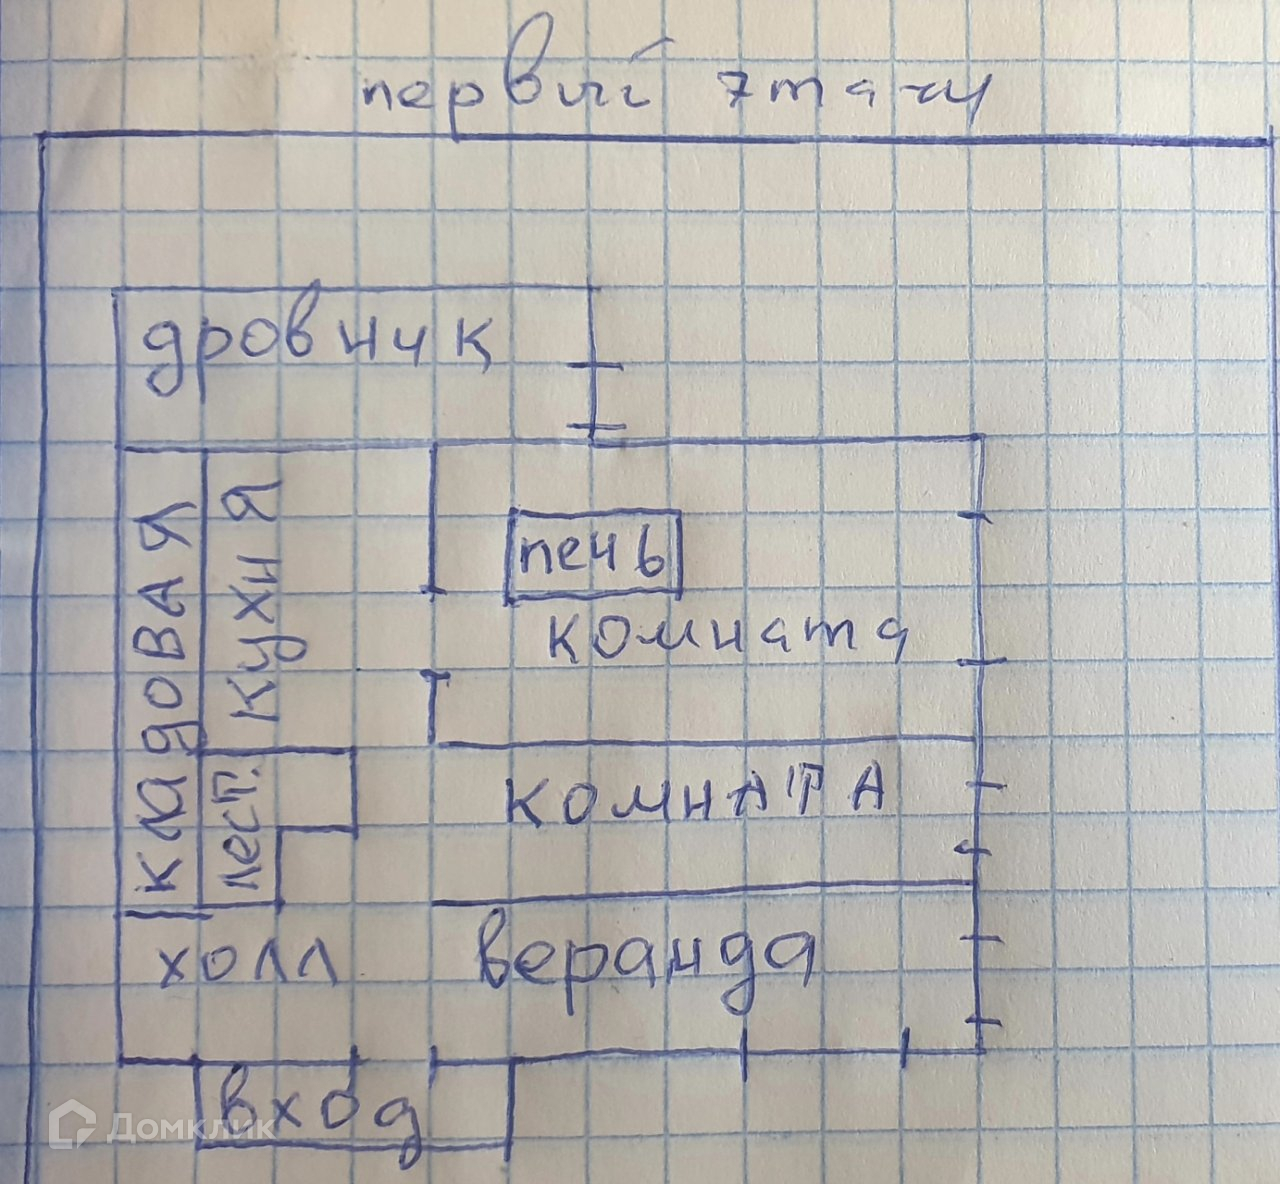 первый этаж
дровник
кладовая
кухня
печь
комната
лест.
комнАТА
холл
веранда
вход
Домклик